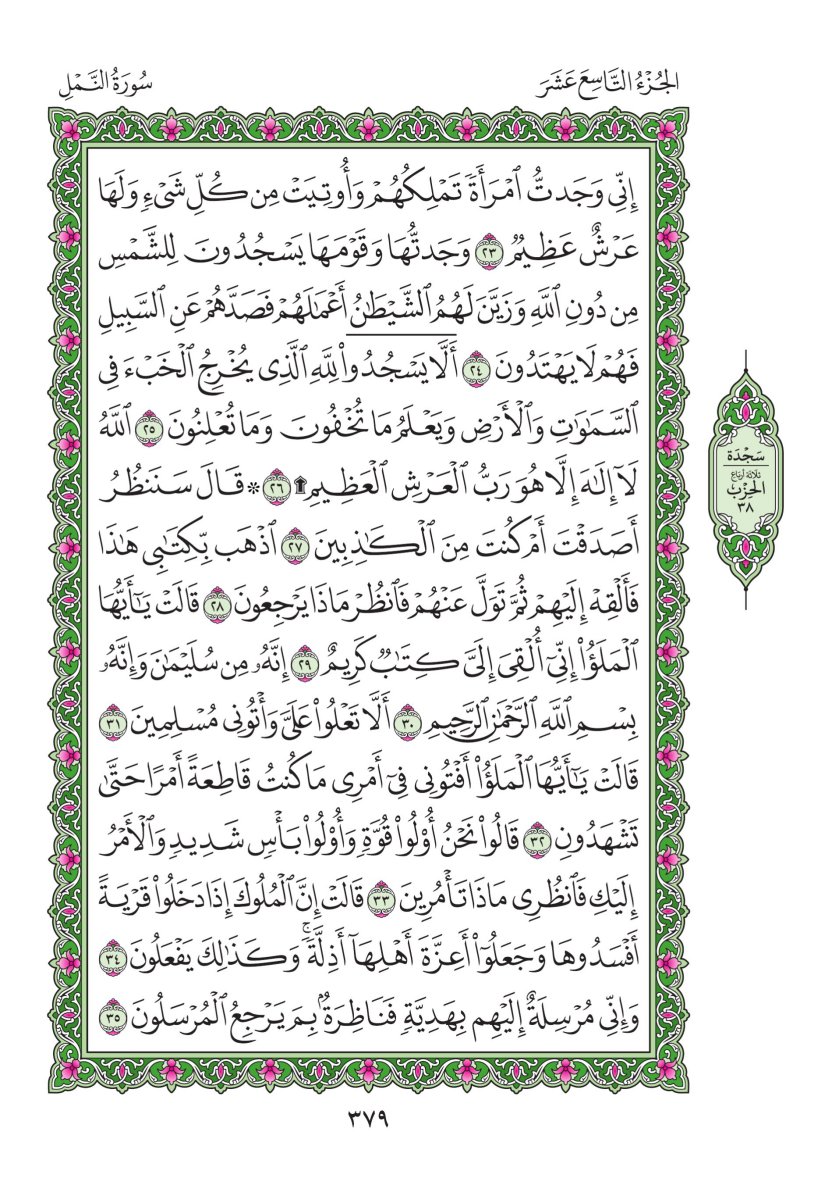 الجُزْءُ التَّاسِعَ عَشَرَ
سُورَةُ النَّمْلِ
إِنِّي وَجَدتُّ ٱمْرَأَةً تَمْلِكُهُمْ وَأُوتِيَتْ مِن كُلِّ شَيْءٍ وَلَهَا
عَرْشٌ عَظِيمٌ ٢٣ وَجَدتُّهَا وَقَوْمَهَا يَسْجُدُونَ لِلشَّمْسِ
مِن دُونِ ٱللَّهِ وَزَيَّنَ لَهُمُ ٱلشَّيْطَٰنُ أَعْمَٰلَهُمْ فَصَدَّهُمْ عَنِ ٱلسَّبِيلِ
فَهُمْ لَا يَهْتَدُونَ ٢٤ أَلَّا يَسْجُدُوا۟ لِلَّهِ ٱلَّذِي يُخْرِجُ ٱلْخَبْءَ فِي
ٱلسَّمَٰوَٰتِ وَٱلْأَرْضِ وَيَعْلَمُ مَا تُخْفُونَ وَمَا تُعْلِنُونَ ٢٥ ٱللَّهُ
لَآ إِلَٰهَ إِلَّا هُوَ رَبُّ ٱلْعَرْشِ ٱلْعَظِيمِ ۩ ٢٦ * قَالَ سَنَنظُرُ
أَصَدَقْتَ أَمْ كُنتَ مِنَ ٱلْكَٰذِبِينَ ٢٧ ٱذْهَب بِّكِتَٰبِي هَٰذَا
فَأَلْقِهْ إِلَيْهِمْ ثُمَّ تَوَلَّ عَنْهُمْ فَٱنظُرْ مَاذَا يَرْجِعُونَ ٢٨ قَالَتْ يَٰٓأَيُّهَا
ٱلْمَلَؤُا۟ إِنِّيٓ أُلْقِيَ إِلَيَّ كِتَٰبٌ كَرِيمٌ ٢٩ إِنَّهُۥ مِن سُلَيْمَٰنَ وَإِنَّهُۥ
بِسْمِ ٱللَّهِ ٱلرَّحْمَٰنِ ٱلرَّحِيمِ ٣٠ أَلَّا تَعْلُوا۟ عَلَيَّ وَأْتُونِي مُسْلِمِينَ ٣١
قَالَتْ يَٰٓأَيُّهَا ٱلْمَلَؤُا۟ أَفْتُونِي فِيٓ أَمْرِي مَا كُنتُ قَاطِعَةً أَمْرًا حَتَّىٰ
تَشْهَدُونِ ٣٢ قَالُوا۟ نَحْنُ أُو۟لُوا۟ قُوَّةٍ وَأُو۟لُوا۟ بَأْسٍ شَدِيدٍ وَٱلْأَمْرُ
إِلَيْكِ فَٱنظُرِي مَاذَا تَأْمُرِينَ ٣٣ قَالَتْ إِنَّ ٱلْمُلُوكَ إِذَا دَخَلُوا۟ قَرْيَةً
أَفْسَدُوهَا وَجَعَلُوٓا۟ أَعِزَّةَ أَهْلِهَآ أَذِلَّةً ۚ وَكَذَٰلِكَ يَفْعَلُونَ ٣٤
وَإِنِّي مُرْسِلَةٌ إِلَيْهِم بِهَدِيَّةٍ فَنَاظِرَةٌۢ بِمَ يَرْجِعُ ٱلْمُرْسَلُونَ ٣٥
سَجْدَة
ثلاثة أرباع
الحِزْب
٣٨
٣٧٩